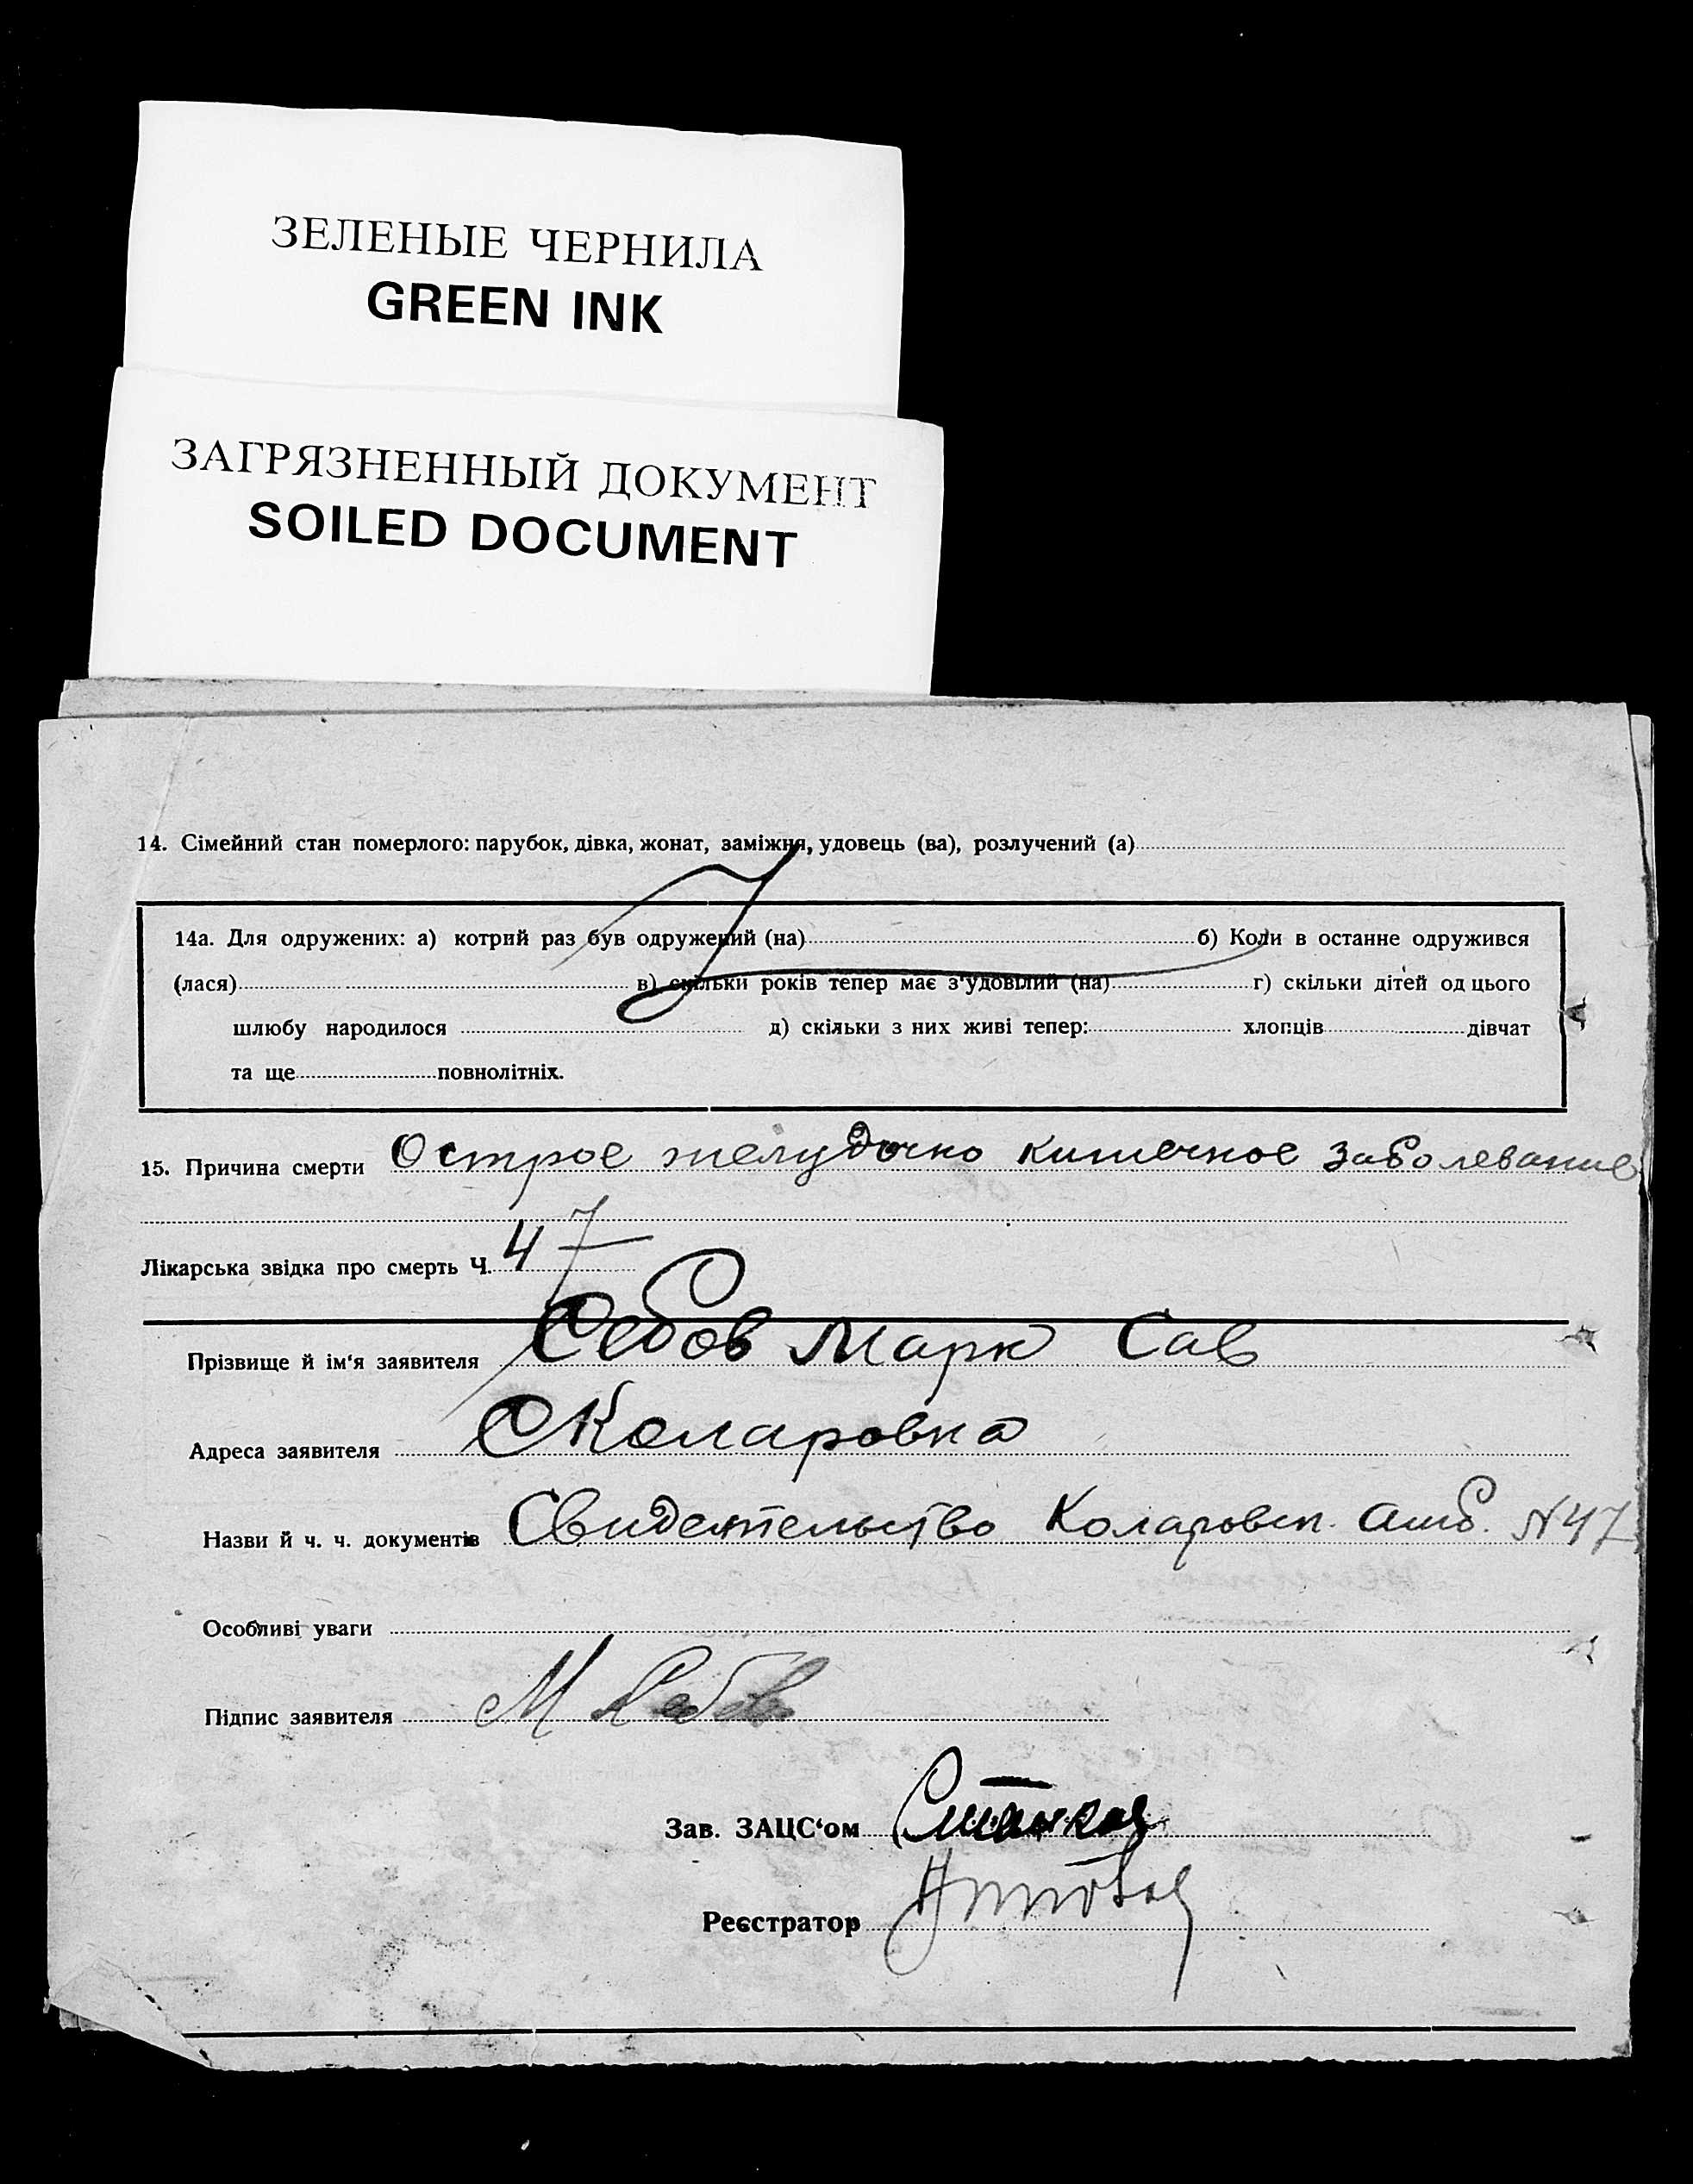 ЗЕЛЕНЫЕ ЧЕРНИЛА
GREEN INK
ЗАГРЯЗНЕННЫЙ ДОКУМЕНТ
SOILED DOCUMENT
14. Сімейний стан померлого: парубок, дівка, жонат, заміжня, удовець (ва), розлучений (а)
14а. Для одружених: а) котрий раз був одружений (на) б) Коли в останне одружився
(лася) в) скільки років тепер має з'удовілий (на) г) скільки дітей од цього
шлюбу народилося д) скільки з них живі тепер: хлопців дівчат
та ще повнолітніх.
15. Причина смерти Острое желудочно кишечное заболевание
Лікарська звідка про смерть Ч. 47
Прізвище й ім'я заявителя Себов Марк Сав
Адреса заявителя С Коларовка
Назви й ч. ч. документів Свидетельство Коларовск. амб. N 47
Особливі уваги
Підпис заявителя М Себов
Зав. ЗАЦС'ом
Реєстратор